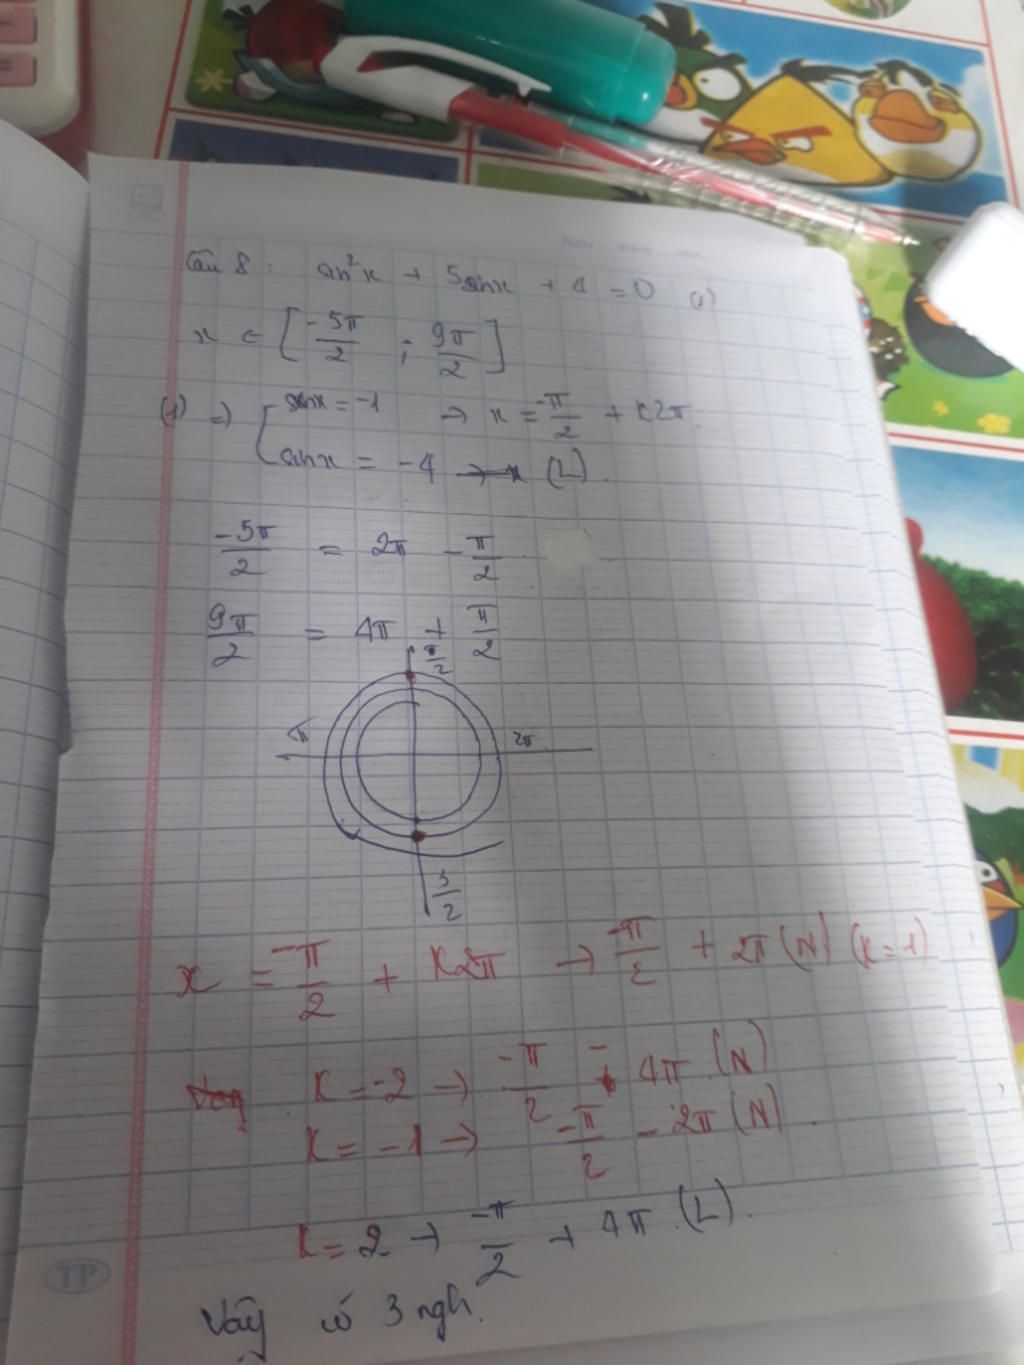 Câu 8: sin²x + 5sinx + 4 = 0 (1)
x ∈ [-5π/2 ; 9π/2]
(1) => [ sinx = -1 → x = -π/2 + K2π.
sinx = -4 → x (L).
-5π/2 = 2π - π/2
9π/2 = 4π + π/2
π/2
π 2π
3/2
x = -π/2 + K2π → -π/2 + 2π (N) (K=1)
Vậy K = -2 → -π/2 - 4π (N)
K = -1 → -π/2 - 2π (N).
K = 2 → -π/2 + 4π (L).
Vậy có 3 ngh.
TP